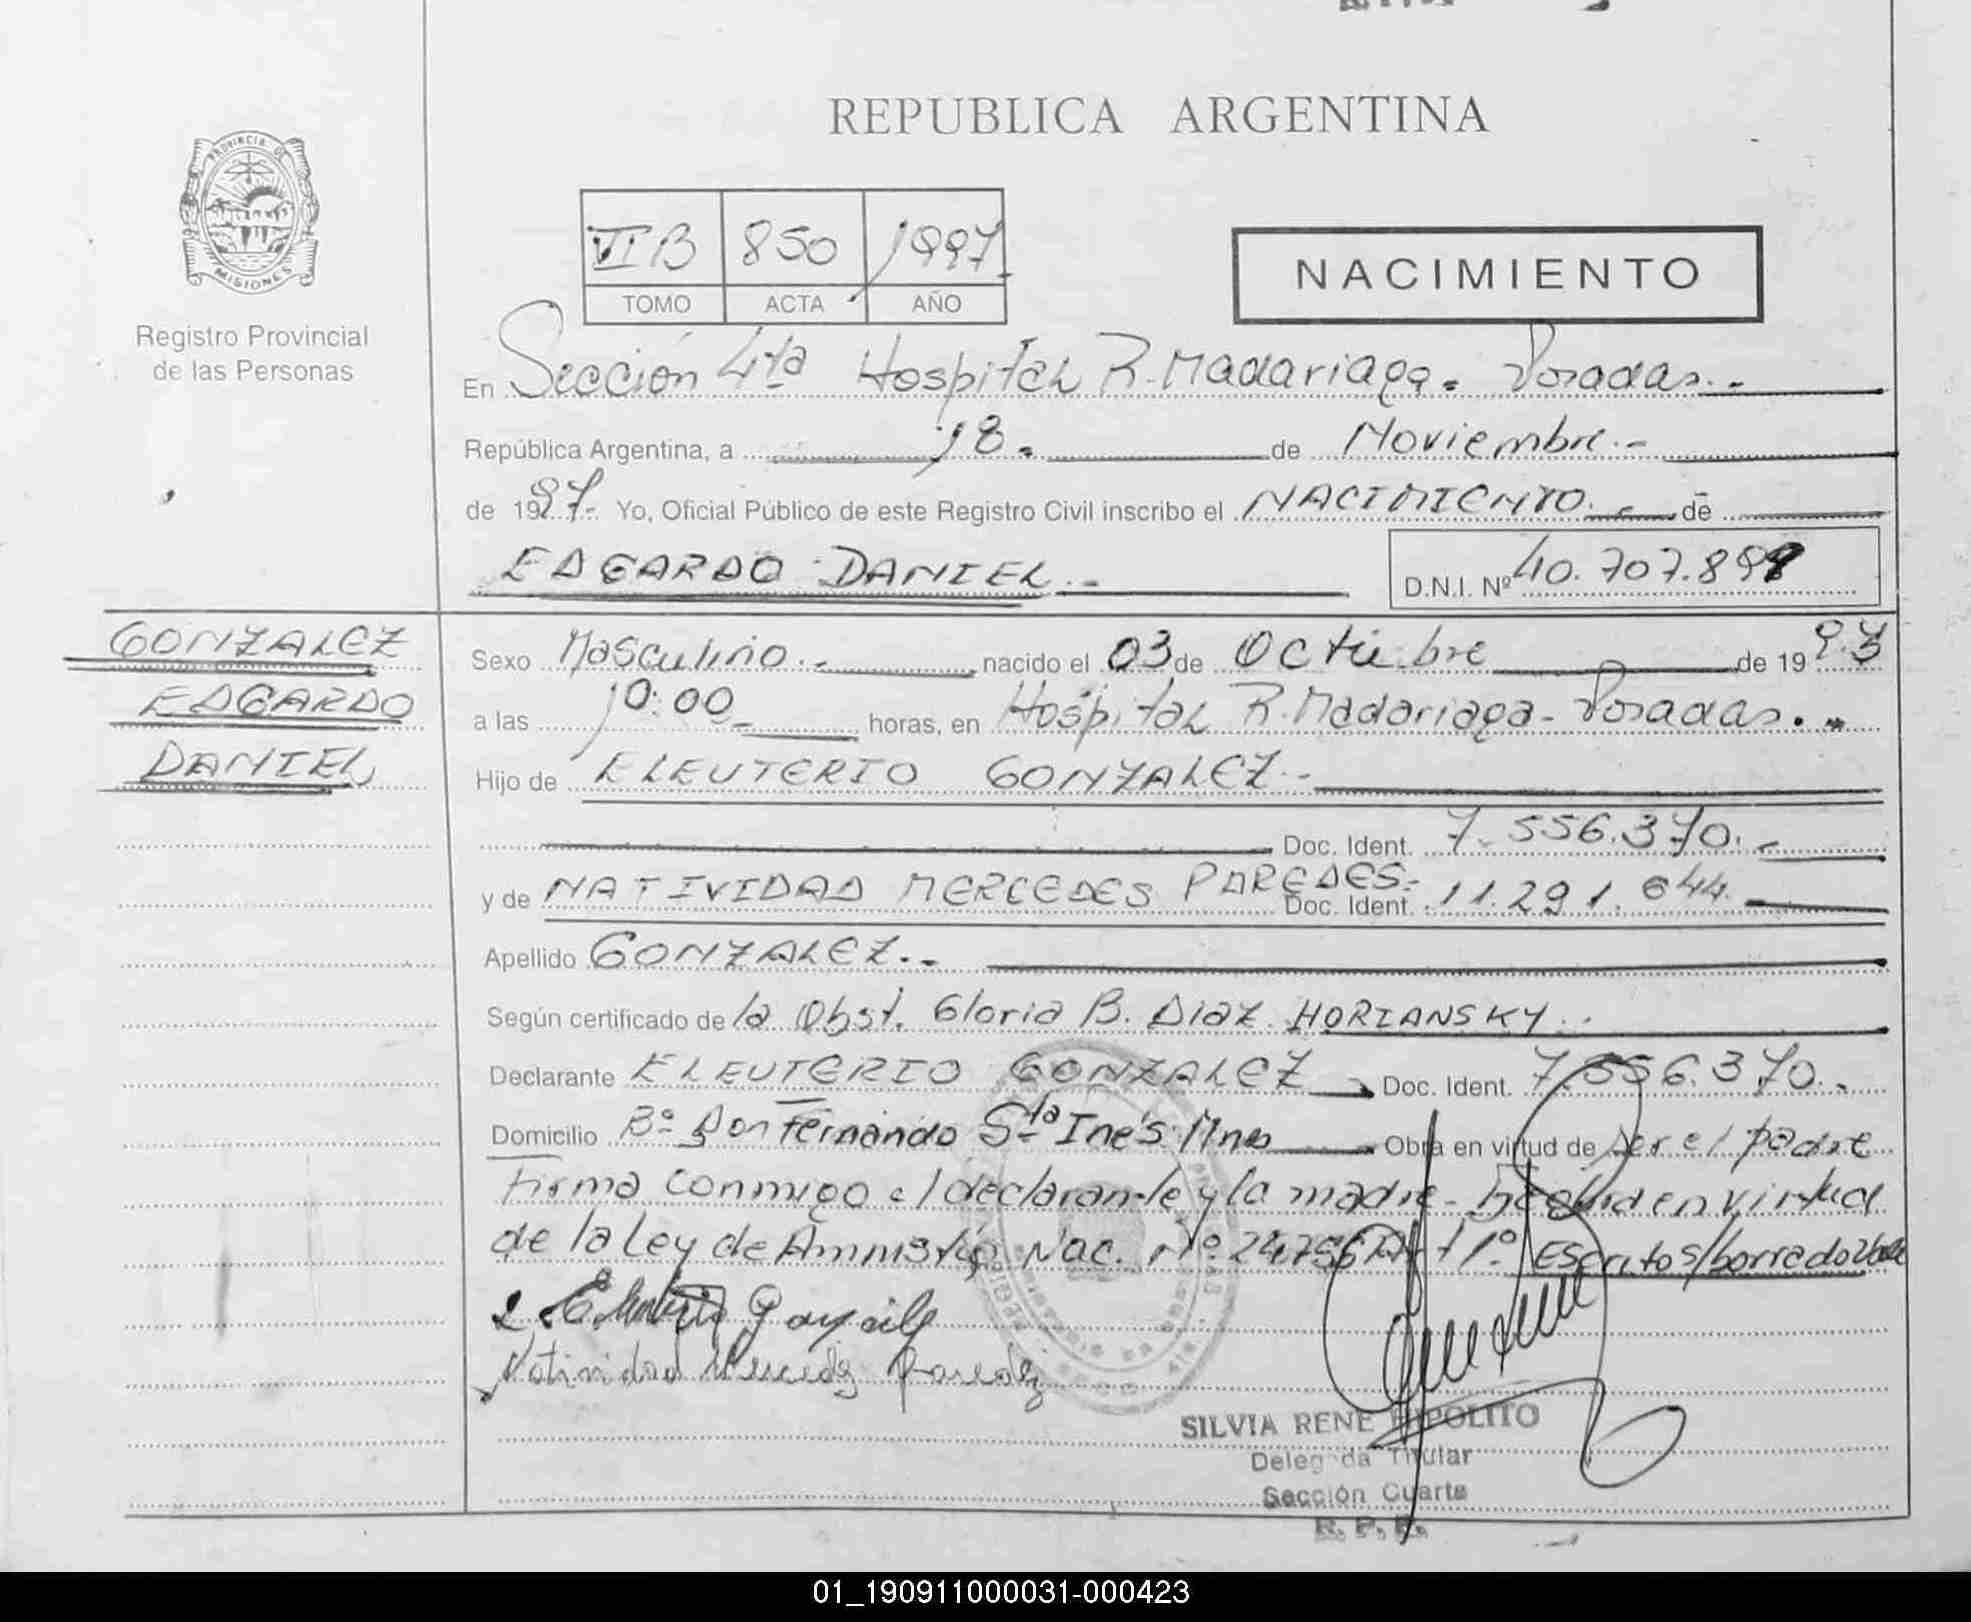 REPUBLICA ARGENTINA
PROVINCIA DE
MISIONES
Registro Provincial
de las Personas
II B 850 1997
TOMO ACTA AÑO
NACIMIENTO
En Sección 4ta Hospital R. Madariaga. Posadas.-
República Argentina, a 18. de Noviembre.-
de 1997.- Yo, Oficial Público de este Registro Civil inscribo el NACIMIENTO.- de
EDGARDO DANIEL.-
D.N.I. Nº 40.707.898
GONZALEZ
EDGARDO
DANIEL
Sexo Masculino.- nacido el 03 de Octubre de 1993
a las 10:00 horas, en Hospital R. Madariaga- Posadas.-
Hijo de ELEUTERIO GONZALEZ.-
Doc. Ident. 7.556.370.-
y de NATIVIDAD MERCEDES PAREDES.- Doc. Ident. 11.291.644.
Apellido GONZALEZ.-
Según certificado de la Obst. Gloria B. Diaz HORIANSKY.
Declarante ELEUTERIO GONZALEZ Doc. Ident. 7.556.370.-
Domicilio Bº Don Fernando Sta Inés Mnes Obra en virtud de ser el padre
Firma conmigo el declarante y la madre- en virtud
de la Ley de Amnistía Nac. Nº 24.756 Art 1º. Escritos/borrado Vale
Natividad Mercedes Paredes
SILVIA RENE HIPOLITO
Delegada Titular
Sección Cuarta
R. P. P.
01_190911000031-000423